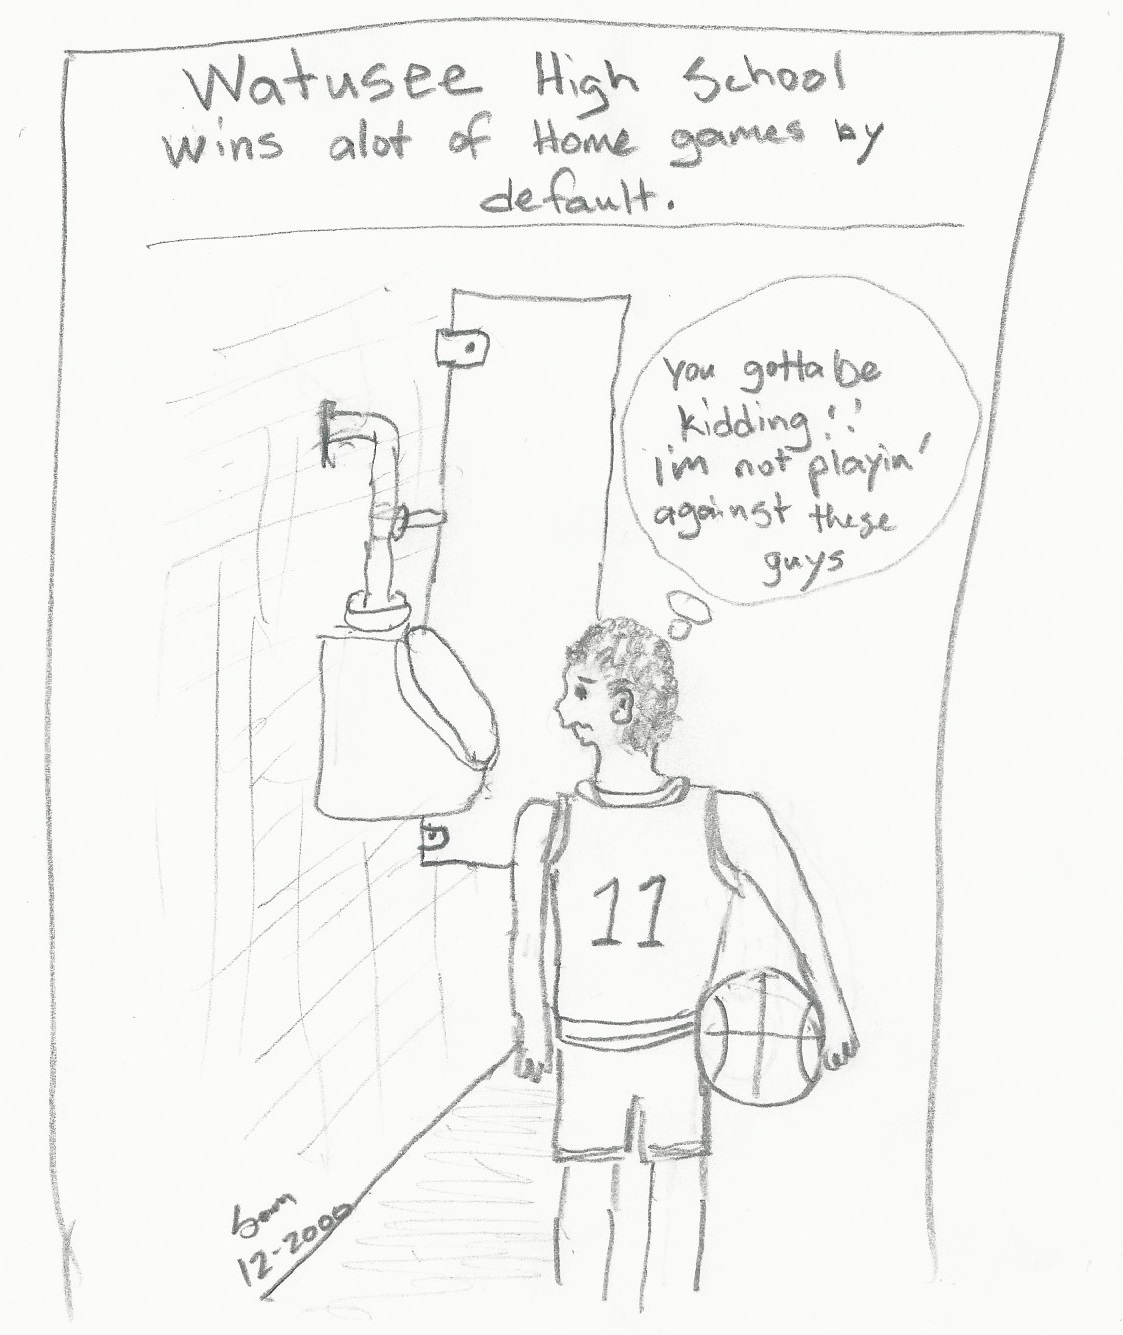 Watusee High School
wins alot of Home games by
default.
you gotta be
kidding!!
i'm not playin'
against these
guys
11
Sam
12-2000